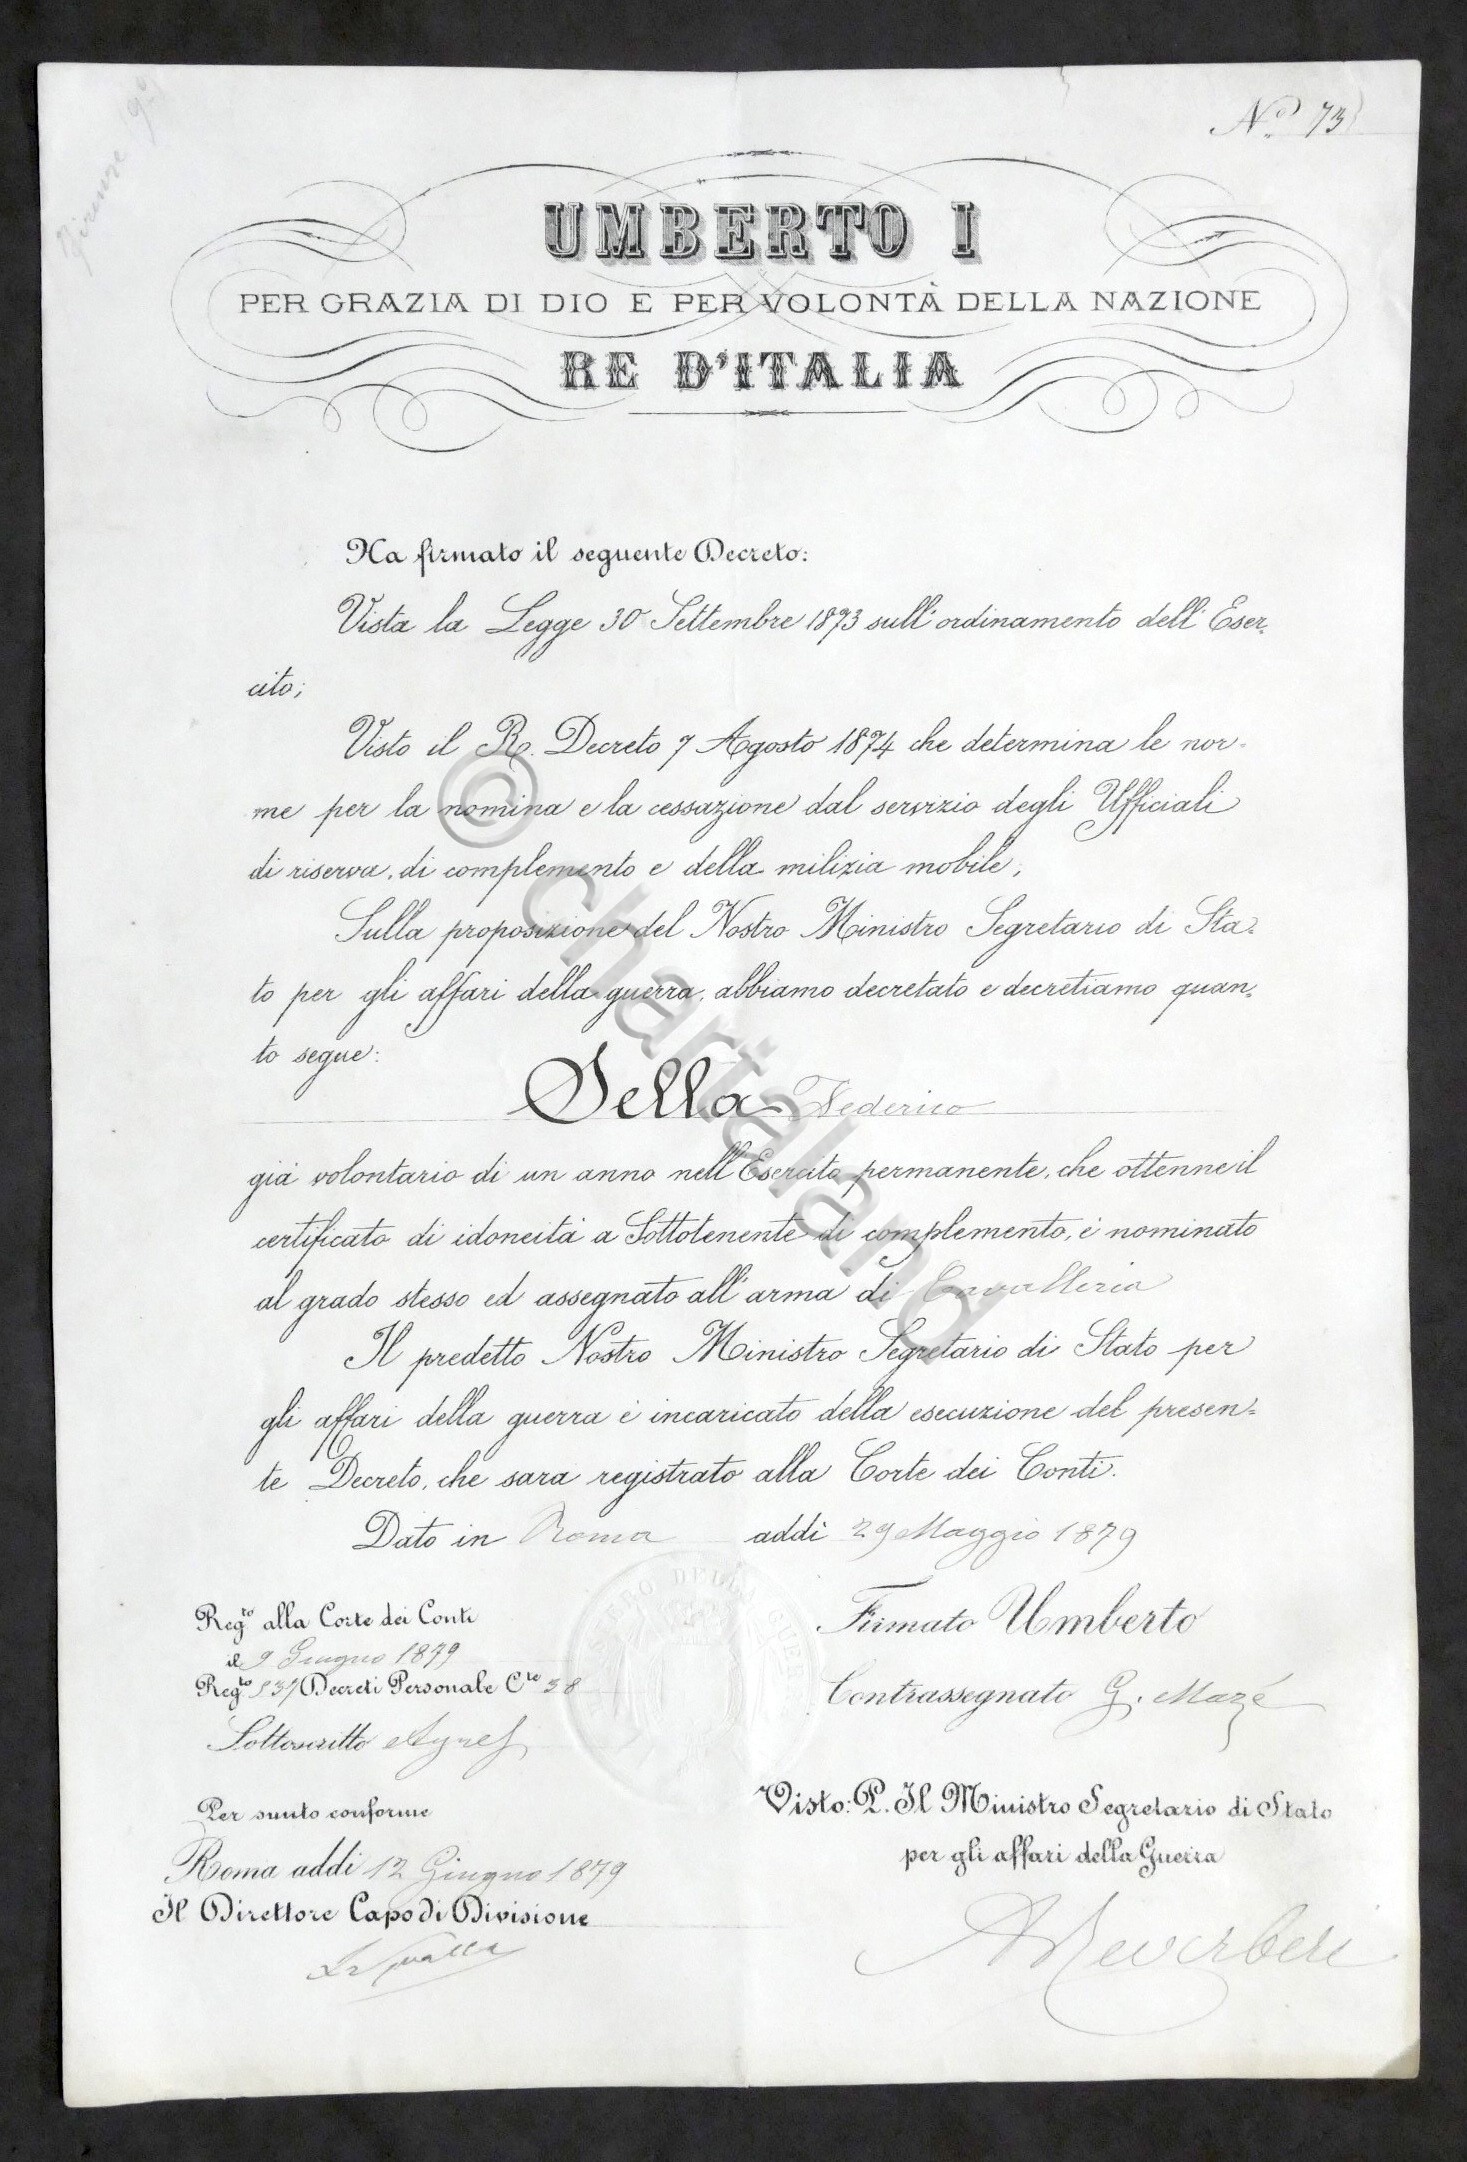 Nº 73
UMBERTO I
PER GRAZIA DI DIO E PER VOLONTÀ DELLA NAZIONE
RE D'ITALIA
Ha firmato il seguente Decreto:
Vista la Legge 30 Settembre 1873 sull'ordinamento dell'Eser-
cito;
Visto il R. Decreto 7 Agosto 1874 che determina le nor-
me per la nomina e la cessazione dal servizio degli Ufficiali
di riserva, di complemento e della milizia mobile;
Sulla proposizione del Nostro Ministro Segretario di Sta-
to per gli affari della guerra, abbiamo decretato e decretiamo quan-
to segue:
Sella Federico
già volontario di un anno nell'Esercito permanente, che ottenne il
certificato di idoneità a Sottotenente di complemento, è nominato
al grado stesso ed assegnato all'arma di Cavalleria
Il predetto Nostro Ministro Segretario di Stato per
gli affari della guerra è incaricato della esecuzione del presen-
te Decreto, che sara registrato alla Corte dei Conti.
Dato in Roma addì 29 Maggio 1879
Firmato Umberto
Contrassegnato G. Mazé
Regto alla Corte dei Conti
il 9 Giugno 1879
Regto 137 Decreti Personale Cte 38
Sottoscritto Ayres
Per sunto conforme
Roma addì 12 Giugno 1879
Il Direttore Capo di Divisione
Visto: P. Il Ministro Segretario di Stato
per gli affari della Guerra
A Reverberi
© chartaland